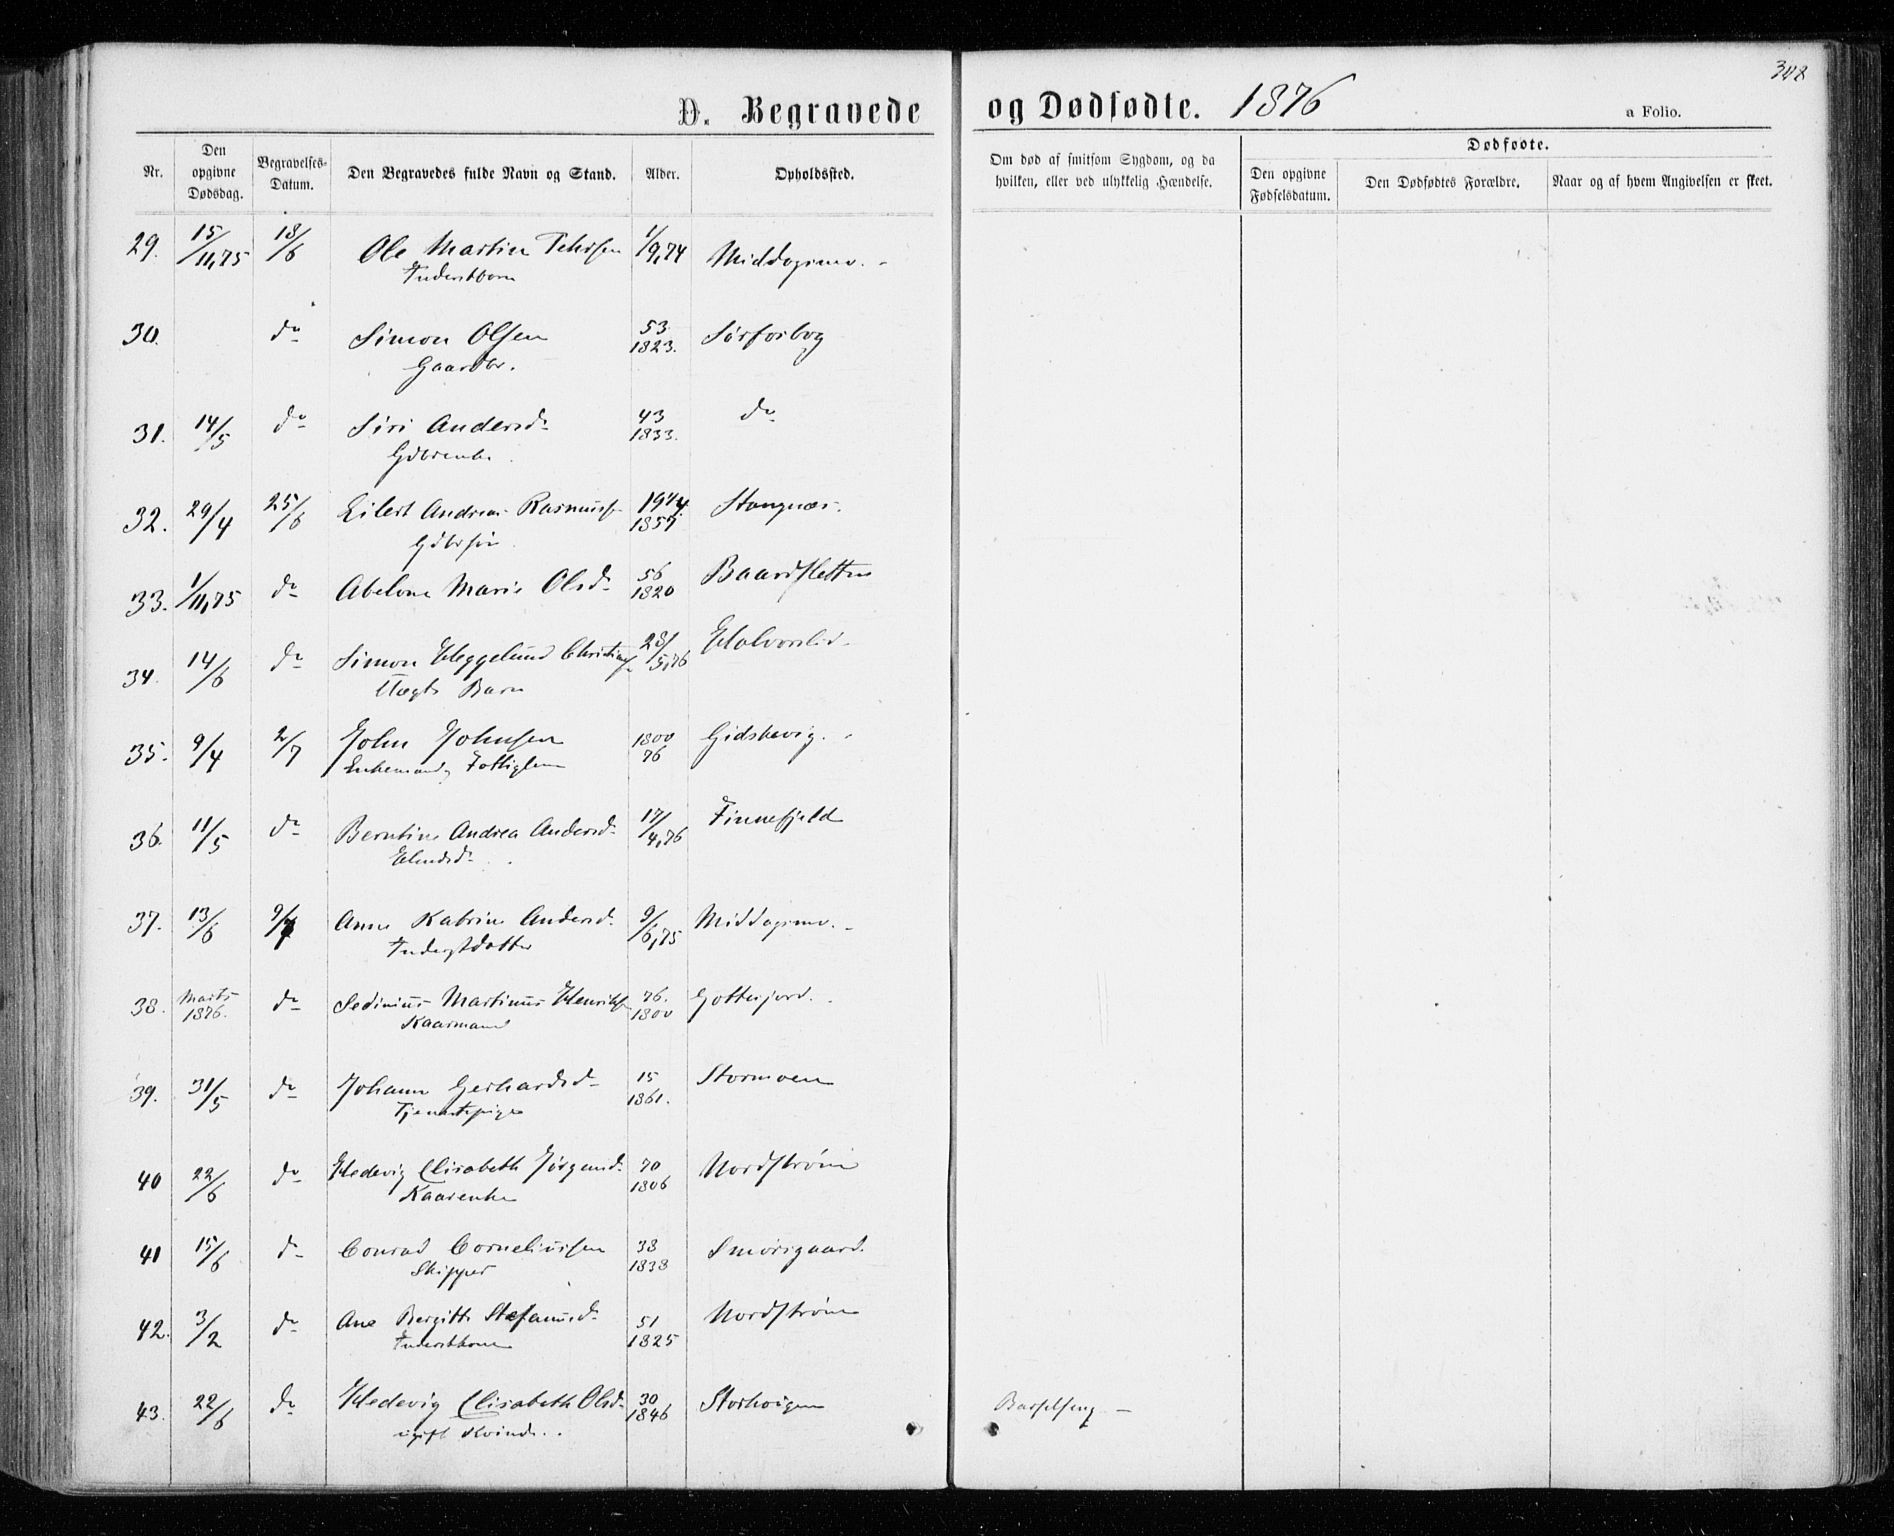 348
D. Begravede og Dødfødte. 1876
a Folio.
Nr. Den opgivne Dødsdag. Begravelses-Datum. Den Begravedes fulde Navn og Stand. Alder. Opholdssted. Om død af smitsom Sygdom, og da hvilken, eller ved ulykkelig Hændelse. Dødfødte. Den opgivne Fødselsdatum. Den Dødfødtes Forældre. Naar og af hvem Angivelsen er skeet.
29. 15/11,75 18/6 Ole Martin Pehrsen 1/9,74 Middagsnev.
Inderstbarn
30. do Simon Olsen 53 1823. Sørforbog
Gaardbr.
31. 14/5 do Siri Andersd. 43 1833. do
Gdbrenke
32. 29/4 25/6 Eilert Andreas Rasmuss. 19 1857 Stangnæs.
Gdbrsøn
33. 1/11,75 do Abelone Marie Olsd. 56 1820 Baardsletten
34. 14/6 do Simon Heggelund Christians. 28/5,76 Halvorslid.
Uægte Barn
35. 9/4 2/7 John Johnsen 1800 76 Gidskevig.
Enkemand, Fattiglem
36. 11/5 do Berntine Andrea Andersd. 17/4,76 Finnefjeld
Husmd.
37. 13/6 9/7 Anne Katrine Andersd. 9/6,75 Middagsnev.
Inderstdatter
38. Marts 1876. do Sedinius Martinus Henriks. 76. 1800 Gottesjord.
Kaarmand
39. 31/5 do Johanne Gerhardsd. 15 1861. Stormoen
Tjenestepige
40 22/6 do Hedevig Elisabeth Jørgensd. 70 1806 Nordstrøm
Kaarenke
41 15/6 do Conrad Corneliussen 38 1838 Smørsgaard.
Skipper
42. 3/2 do Ane Bergitte Stefanusd. 51 1825 Nordstrøm
Inderstkone
43. 22/6 do Hedevig Elisabeth Olsd. 30 1846 Storhaugen Barselseng
ugift Kvinde.